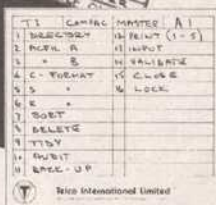 T1 COMPAC MASTER A1
1 DIRECTORY 12 PRINT (1-5)
2 ACFIL A 13 INPUT
3 " B 14 VALIDATE
4 C-FORMAT 15 CLOSE
5 S " 16 LOCK
6 R "
7 SORT
8 DELETE
9 TIDY
10 AUDIT
11 BACK-UP
T Telco International Limited